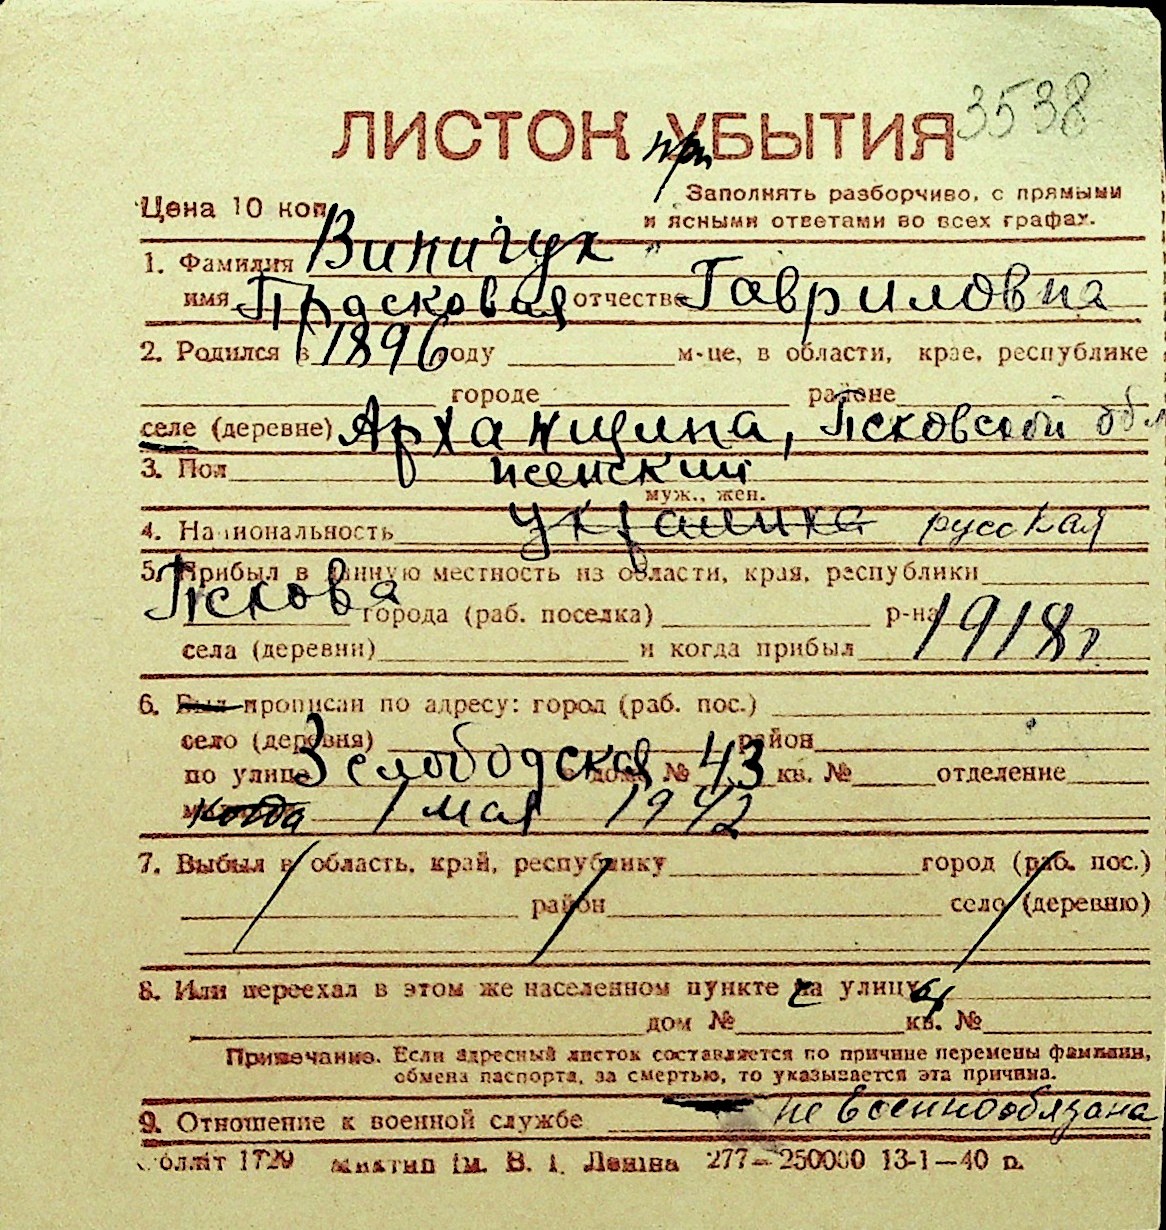 3538
ЛИСТОК УБЫТИЯ
при
Цена 10 коп.
Заполнять разборчиво, с прямыми
и ясными ответами во всех графах.
1. Фамилия Виничук
имя Прасковая отчество Гавриловна
2. Родился в 1896 году м-це, в области, крае, республике
городе районе
селе (деревне) Арханщина, Псковской обл
3. Пол женский
муж., жен.
4. Национальность украинка русская
5. Прибыл в данную местность из области, края, республики
Пскова города (раб. поселка) р-на
села (деревни) и когда прибыл 1918 г
6. Был прописан по адресу: город (раб. пос.)
село (деревня) район
по улице Зслободская дом № 43 кв. № отделение
когда 1 мая 1942
7. Выбыл в область, край, республику город (раб. пос.)
район село (деревню)
8. Или переехал в этом же населенном пункте на улицу
дом № кв. №
Примечание. Если адресный листок составляется по причине перемены фамилии,
обмена паспорта, за смертью, то указывается эта причина.
9. Отношение к военной службе не военнообязана
Облліт 1729 ім. В. І. Леніна 277—250000 13-1—40 р.